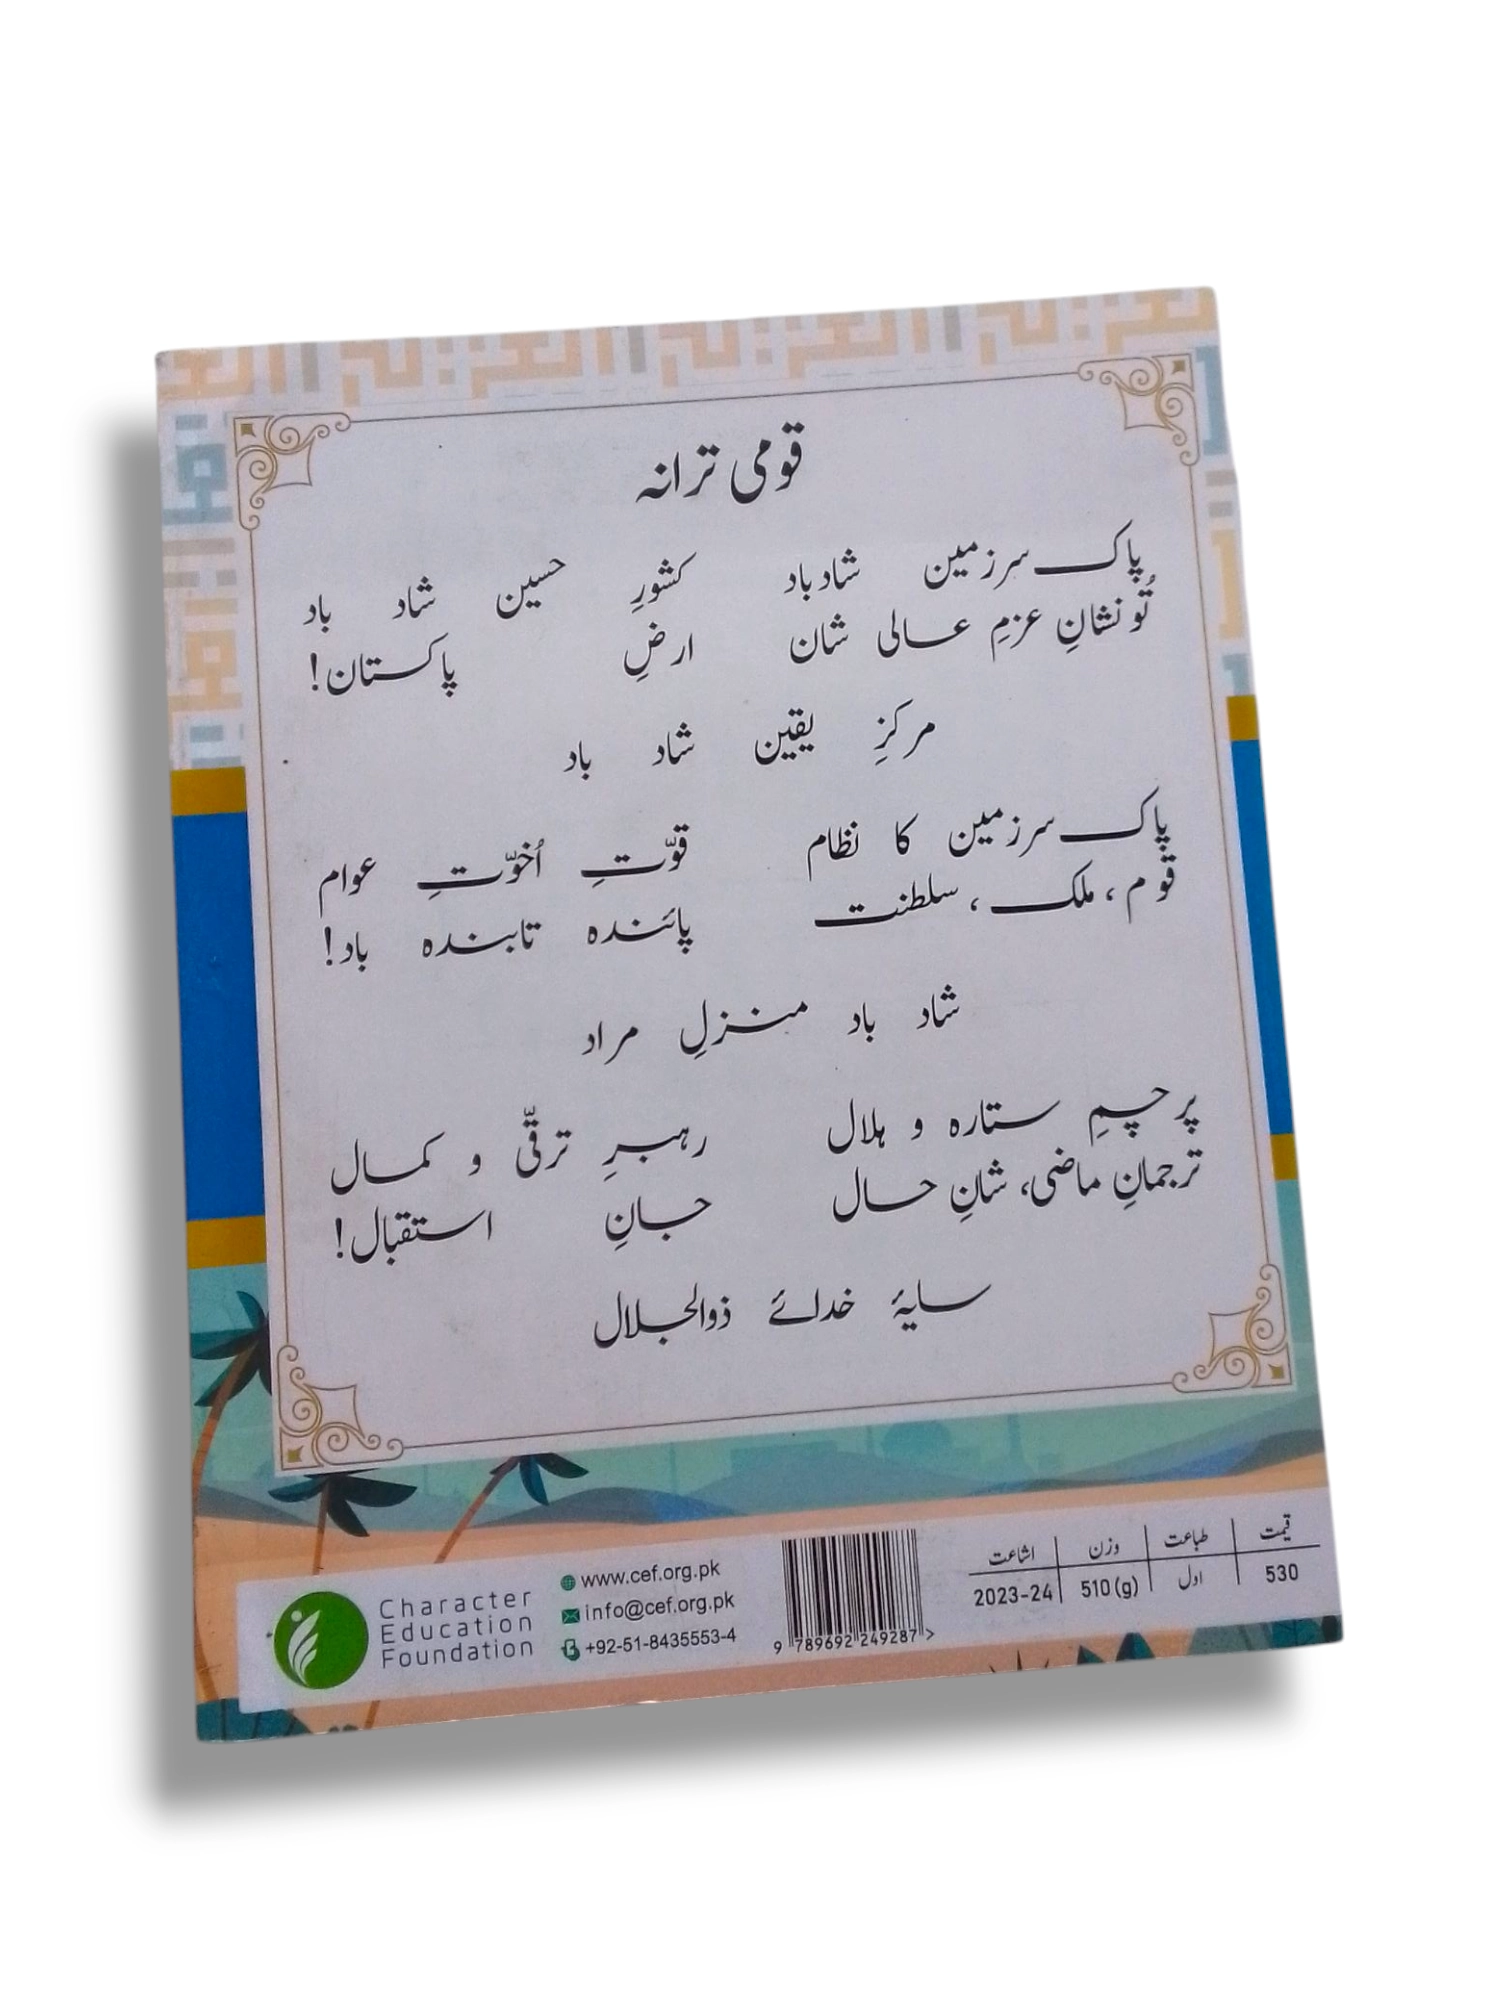 قومی ترانہ
پاک سرزمین شادباد کشورِ حسین شاد باد
تُو نشانِ عزمِ عالی شان ارضِ پاکستان!
مرکزِ یقین شاد باد
پاک سرزمین کا نظام قوّتِ اُخوّتِ عوام
قوم، ملک، سلطنت پائندہ تابندہ باد!
شاد باد منزلِ مراد
پرچمِ ستارہ و ہلال رہبرِ ترقّی و کمال
ترجمانِ ماضی، شانِ حال جانِ استقبال!
سایۂ خدائے ذوالجلال
قیمت طباعت وزن اشاعت
530 اول 510(g) 2023-24
Character
Education
Foundation
www.cef.org.pk
info@cef.org.pk
+92-51-8435553-4
9 789692 249287 >